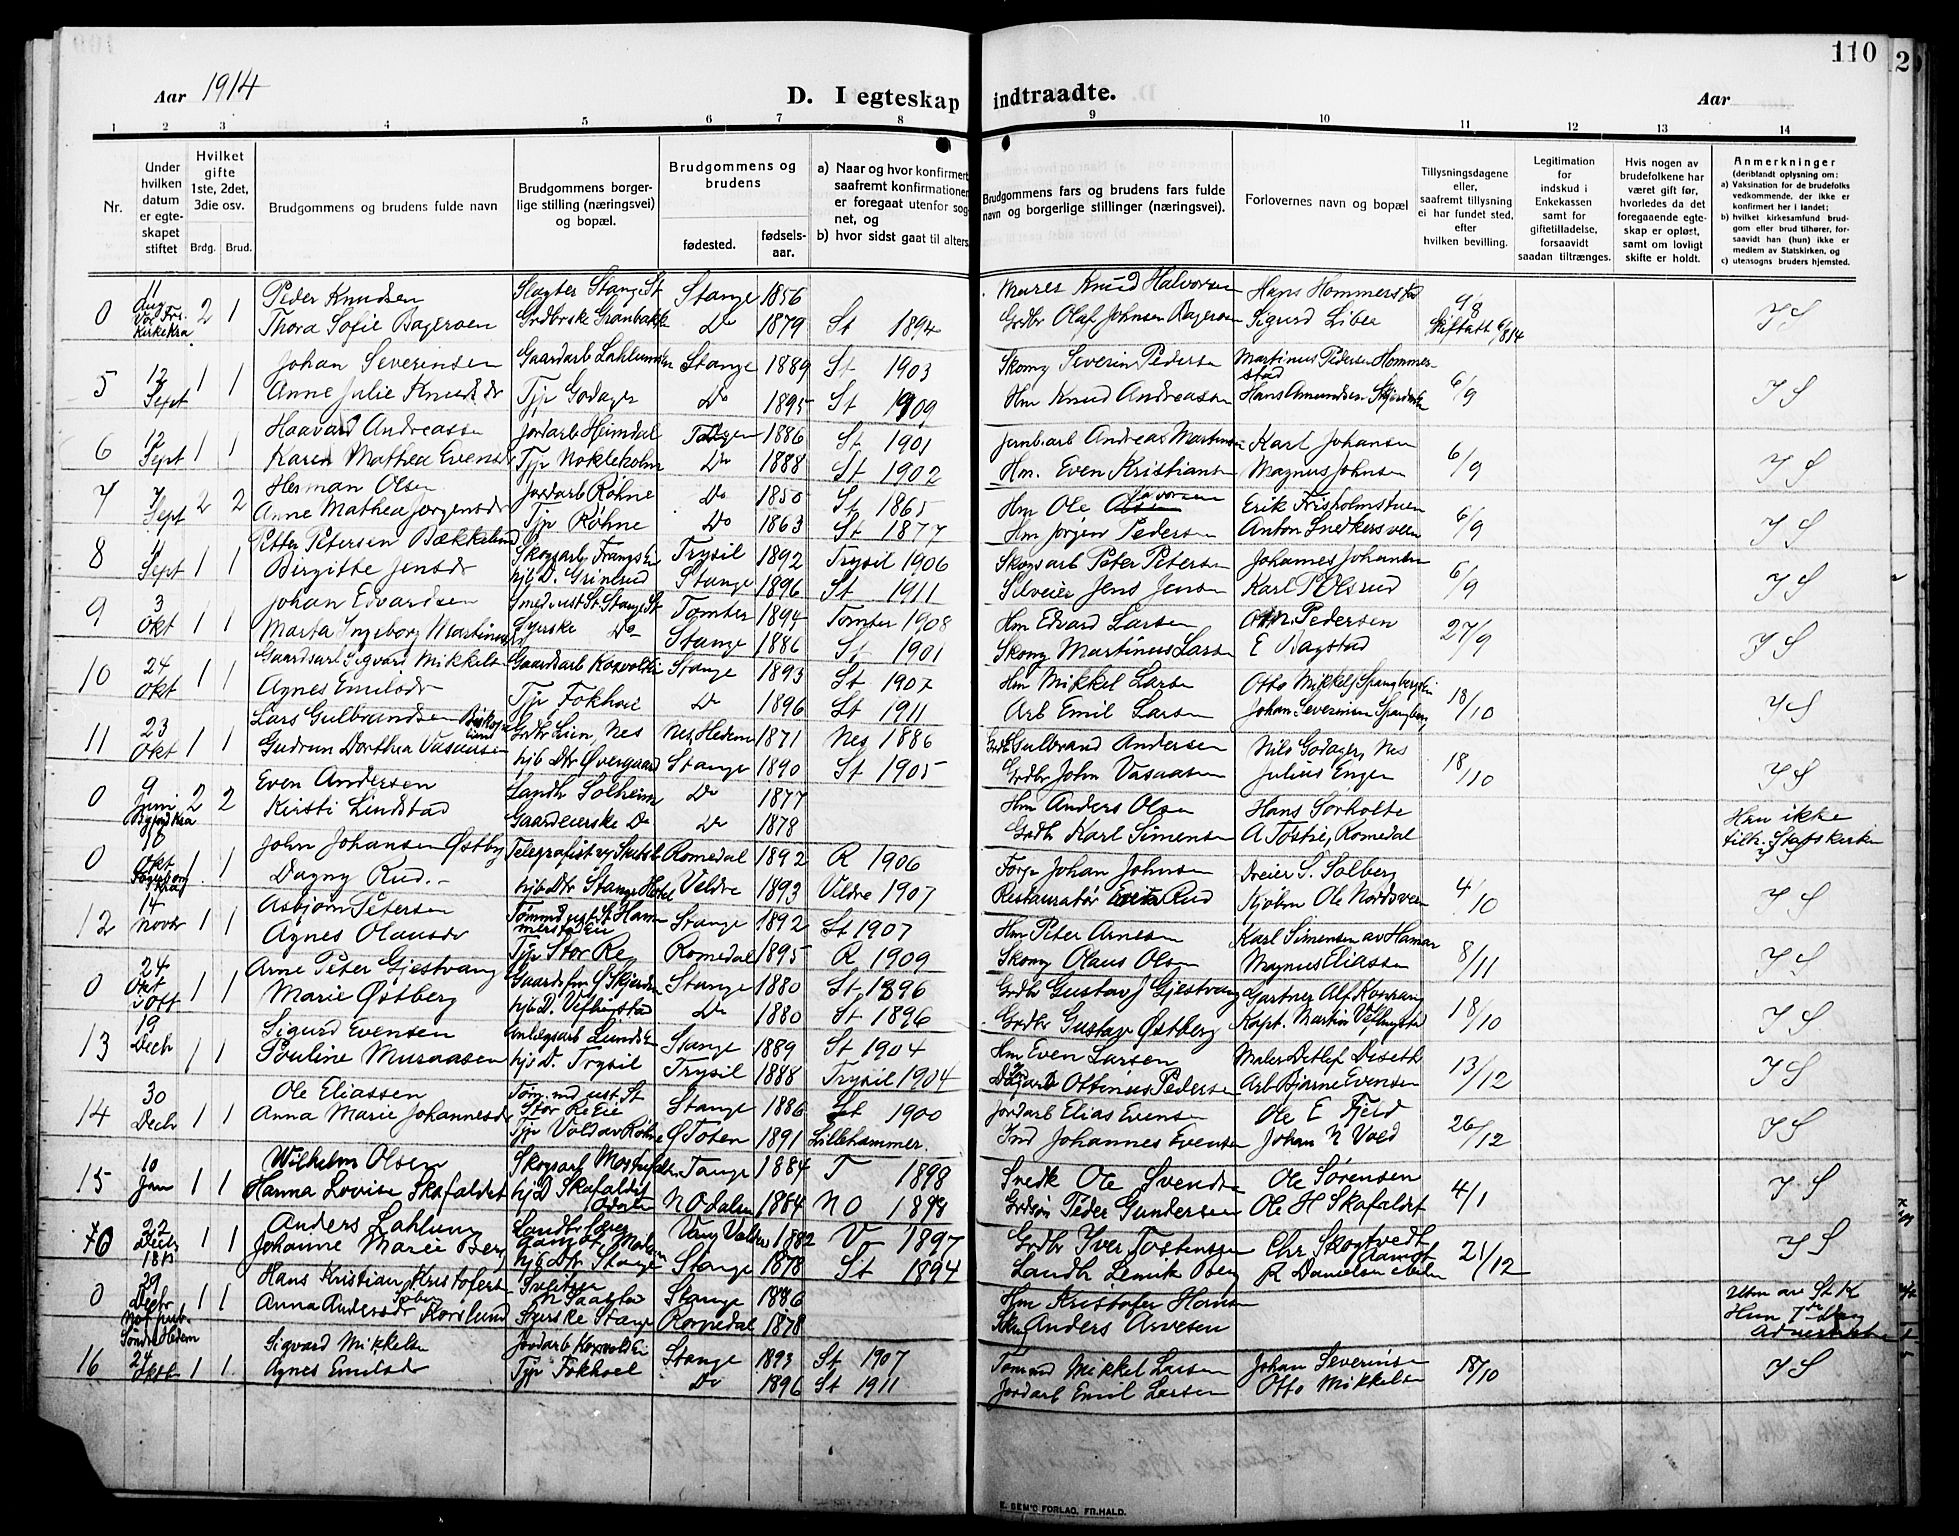 110
Aar 1914
D. I egteskap indtraadte.
Aar
1 2 3 4 5 6 7 8 9 10 11 12 13 14
Nr.
Under hvilken datum er egteskapet stiftet
Hvilket gifte 1ste, 2det, 3die osv.
Brdg. Brud.
Brudgommens og brudens fulde navn
Brudgommens borgerlige stilling (næringsvei) og bopæl.
Brudgommens og brudens
fødested.
fødselsaar.
a) Naar og hvor konfirmert saafremt konfirmationen er foregaat utenfor sognet, og
b) hvor sidst gaat til alters.
Brudgommens fars og brudens fars fulde navn og borgerlige stillinger (næringsvei).
Forlovernes navn og bopæl
Tillysningsdagene eller, saafremt tillysning ei har fundet sted, efter hvilken bevilling.
Legitimation for indskud i Enkekassen samt for giftetilladelse, forsaavidt saadan tiltrænges.
Hvis nogen av brudefolkene har været gift før, hvorledes da det foregaaende egteskap er opløst, samt om lovligt skifte er holdt.
Anmerkninger
(deriblandt oplysning om:
a) Vaksination for de brudefolks vedkommende, der ikke er konfirmert her i landet;
b) hvilket kirkesamfund brudgom eller brud tilhører, forsaavidt han (hun) ikke er medlem av Statskirken, og
c) utensogns bruders hjemsted.
0 11 Aug Vor Frs. Kirke Kra 2 1 Peder Knudsen Slagter Stange St Stange 1856 Murer Knud Halvorsen Hans Hommerstad 9/8 I S
Thora Sofie Bageroen Grdbrske Granbakke Do 1879 St 1894 Grdbr Olaf Johnsen Bageroen Sigurd Libea Skiftatt 6/8 14
5 12 Sept 1 1 Johan Severinsen Gaardarb Lahlumsten Stange 1889 St 1903 Skomg Severin Pedersen Martinus Pedersen Hommerstad 6/9 I S
Anne Julie Knudsdr Tjp Godager Do 1895 St 1909 Hm Knud Andreassen Hans Amundsen
6 12 Sept 1 1 Haavard Andreassen Jordarb Heimdal Tangen 1886 St 1901 Jernbarb Andreas Martinsen Karl Johansen 6/9 I S
Karen Mathea Evensdr Tjp Nokleholm Do 1888 St 1902 Hm. Even Kristiansen Magnus Johnsen
7 7 Sept 2 2 Herman Olsen Jordarb Røhne Do 1850 St 1865 Hm Ole Erik Frisholmstuen 6/9 I S
Anne Mathea Jørgensdr Tjp Røhne Do 1863 St 1877 Hm Jørgen Pedersen Anton Snekkersveen
8 Sept 1 1 Petter Petersen Bækkelund Skogsarb Trysil 1892 Trysil 1906 Skogsarb Peter Petersen Johannes Johansen 6/9 I S
Birgitte Jensdr hjb D. Grinerud Stange 1896 St 1911 Selveier Jens Jensen Karl P Olsrud
9 3 Okt 1 1 Johan Edvardsen Smed ust St Stange St Tomter 1894 Tomter 1908 Hm Edvard Larsen Pedersen 27/9 I S
Marta Ingeborg Martinusdr Syerske Do Stange 1886 St 1901 Skomg Martinus Larsen E Bagstad
10 24 Okt 1 1 Gaardsarb Sigvard Mikkelsen Gaardsarb Korsvoldei Stange 1893 St 1907 Hm Mikkel Larsen Otto Mikkels Spangbergeie 18/10 I S
Agnes Emilsdr Tjp Fokhoel Do 1896 St 1911 Arb Emil Larsen Johan Severinsen Spangberg
11 23 Okt 1 1 Lars Gulbrandsen Biskoplund Grdbr Lien, Nes Nes, Hedem 1871 Nes 1886 Grdbr Gulbrand Andersen Nils Godager, Nes 18/10 I S
Gudrun Dorthea Vasaasen hjb Dtr Øvergaard Stange 1890 St 1905 Grdbr John Vasaasen Julius Enger
0 9 Juni Bygd Kra 2 2 Even Andersen Landh Solheim Do 1877 Hm Anders Olsen Hans Sørholte Han ikke
Kirsti Lindstad Gaardeierske Do Do 1878 Grdb Karl Simensen A Tostrie, Romedal tilh. Statskirken
0 10 Okt Kra 1 1 John Johansen Østby Telegrafist Romedal 1892 R 1906 Forp Johan Johnsen Dreier S. Solberg 4/10 I S
Dagny Rud.- hjb Dtr Stange Hotel Veldre 1893 Veldre 1907 Restauratør Rud Kjøbm Ole Nordsveen
12 14 Novbr 1 1 Asbjørn Petersen Tømmd ust St Hammerstadeie Stange 1892 St 1907 Hm Peter Arnesen Karl Simensen av Hamar 8/11 I S
Agnes Olausdr Tjp Stor Re Romedal 1895 R 1909 Skomg Olaus Olsen Magnus Eliassen
0 24 Okt i Ott 1 1 Arne Peter Gjestvang Gaardsfm Ø Skjerden Stange 1880 St 1896 Grdbr Gustav J Gjestvang Gartner Alf 18/10 I S
Marie Østberg hjb D. Vethigstad Do 1880 St 1896 Grdbr Gustav Østberg Kapt. Martin
13 19 Decbr 1 1 Sigurd Evensen Anlegsarb Lunds Stange 1889 St 1904 Hm Even Larsen Maler Detlef Deseth 13/12 I S
Pauline Muraasen hjs D. Trysil Trysil 1888 Trysil 1904 Dagarb Ottinius Pedersen Arb Bjarne Evensen
14 30 Decbr 1 1 Ole Eliassen Tøm.md ust St Stor Re Eie Stange 1886 St 1900 Jordarb Elias Evensen Ole E Fjeld 26/12 I S
Anna Marie Johannesdr Tjp Vold av Røhne Ø Toten 1891 Lillehammer. Ind Johannes Evensen Johan N Vold
15 10 Jan 1 1 Wilhelm Olsen Skogsarb Tange 1884 T 1898 Snedk Ole Svendsen Ole Sørensen 4/1 I S
Hanna Lovise Skafaldet hj D Skafaldet Odalen N Odalen 1884 N O 1898 Grdsøn Peder Gundersen Ole H Skafaldet
0 22 Decbr 1813 1 1 Anders Lahlum Vang Valdres 1882 V 1897 Grdbr Iver Tostensen Chr Skogtvedt 21/12 I S
Johanne Marie Berg hjb Dtr Stange Stange 1878 St 1894 Landh Lemik Berg R Danielsen
0 29 Decbr Not publ. Søndre Hedem 1 1 Hans Kristian Kristofersen Sveitser n Saastad Stange 1886 Hm Kristofer Hansen Utm av St K
Anna Andersdr Korslund Syerske Stange Romedal 1878 Skmg Anders Arvesen Hun 7de Dag Adventist
16 24 Oktb 1 1 Sigvard Mikkelsen Jordarb Korsvold Ei Stange 1893 St 1907 Tømmd Mikkel Larsen Johan Severinsen 18/10 I S
Agnes Emilsdr Tjp Fokhoel Do 1896 St 1911 Jordarb Emil Larsen Otto Mikkelsen
E. SEM'S FORLAG, FR.HALD.